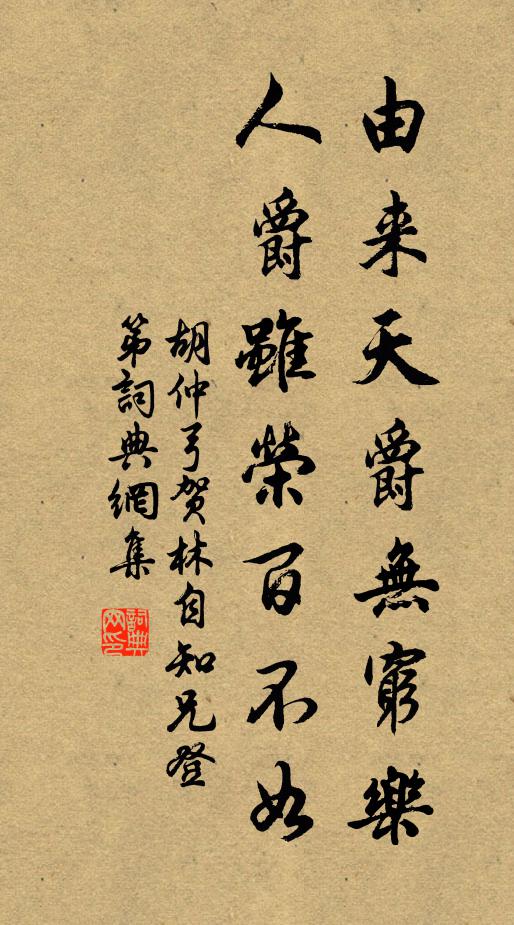 由来天爵無窮樂
人爵雖榮百不如
胡仲弓賀林自知兄登
第詞典網集
詞典
网印